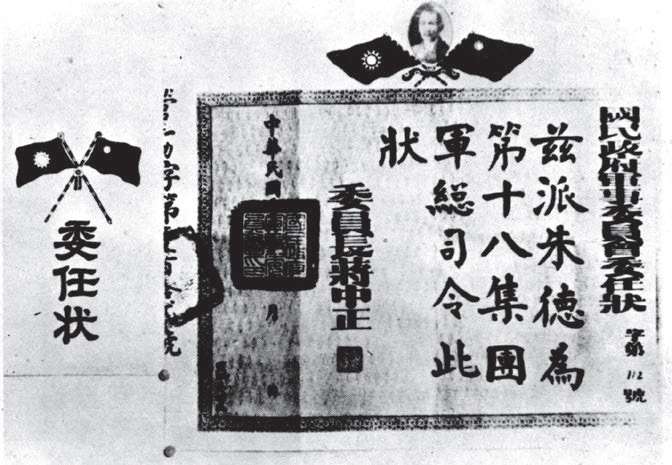 國民政府軍事委員會委任狀
字第112號
茲派朱德為
第十八集團
軍總司令此
狀
委員長蔣中正
中華民國
月
字第
號
委任状